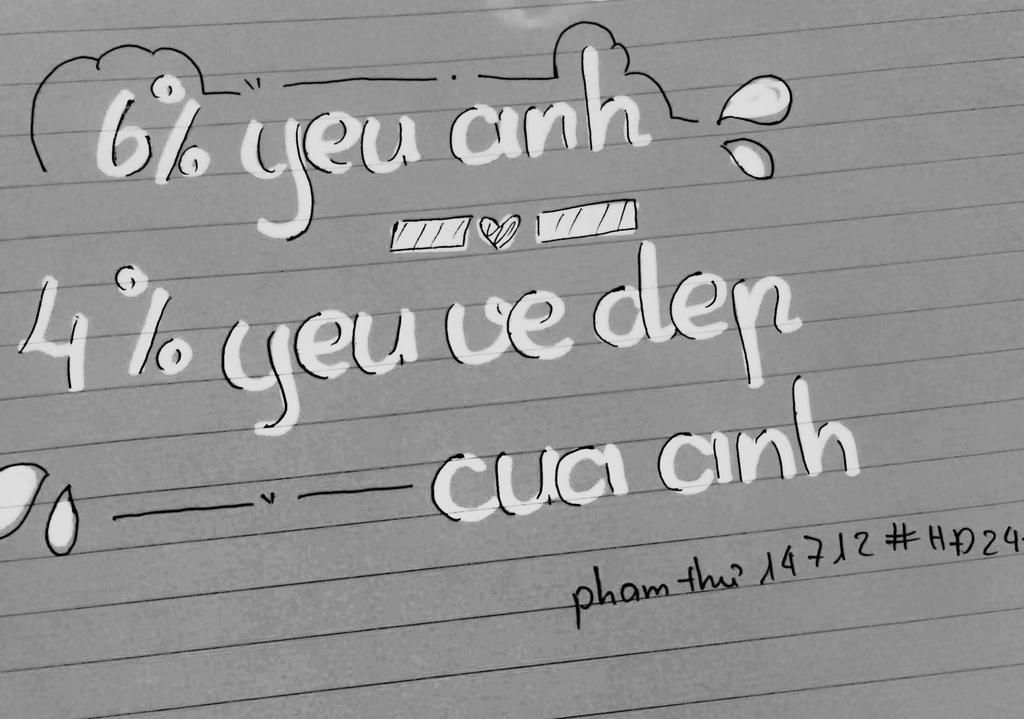 6% yeu anh
4% yeu ve dep
cua anh
pham thư 14712 #HĐ24